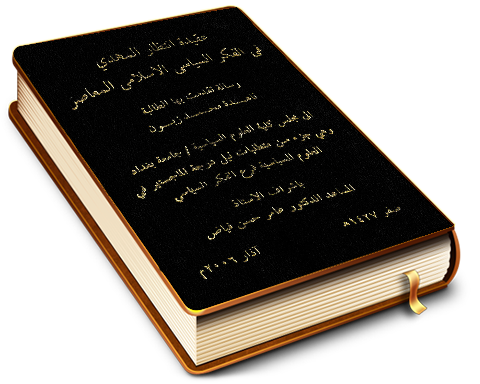 عقيدة انتظار المهدي
في الفكر السياسي الاسلامي المعاصر
رسالة تقدمت بها الطالبة
ناهدة محمد زبون
الى مجلس كلية العلوم السياسية / جامعة بغداد
وهي جزء من متطلبات نيل درجة الماجستير في
العلوم السياسية فرع الفكر السياسي
باشراف الاستاذ
المساعد الدكتور عامر حسن فياض
صفر ١٤٢٧هـ
آذار ٢٠٠٦م